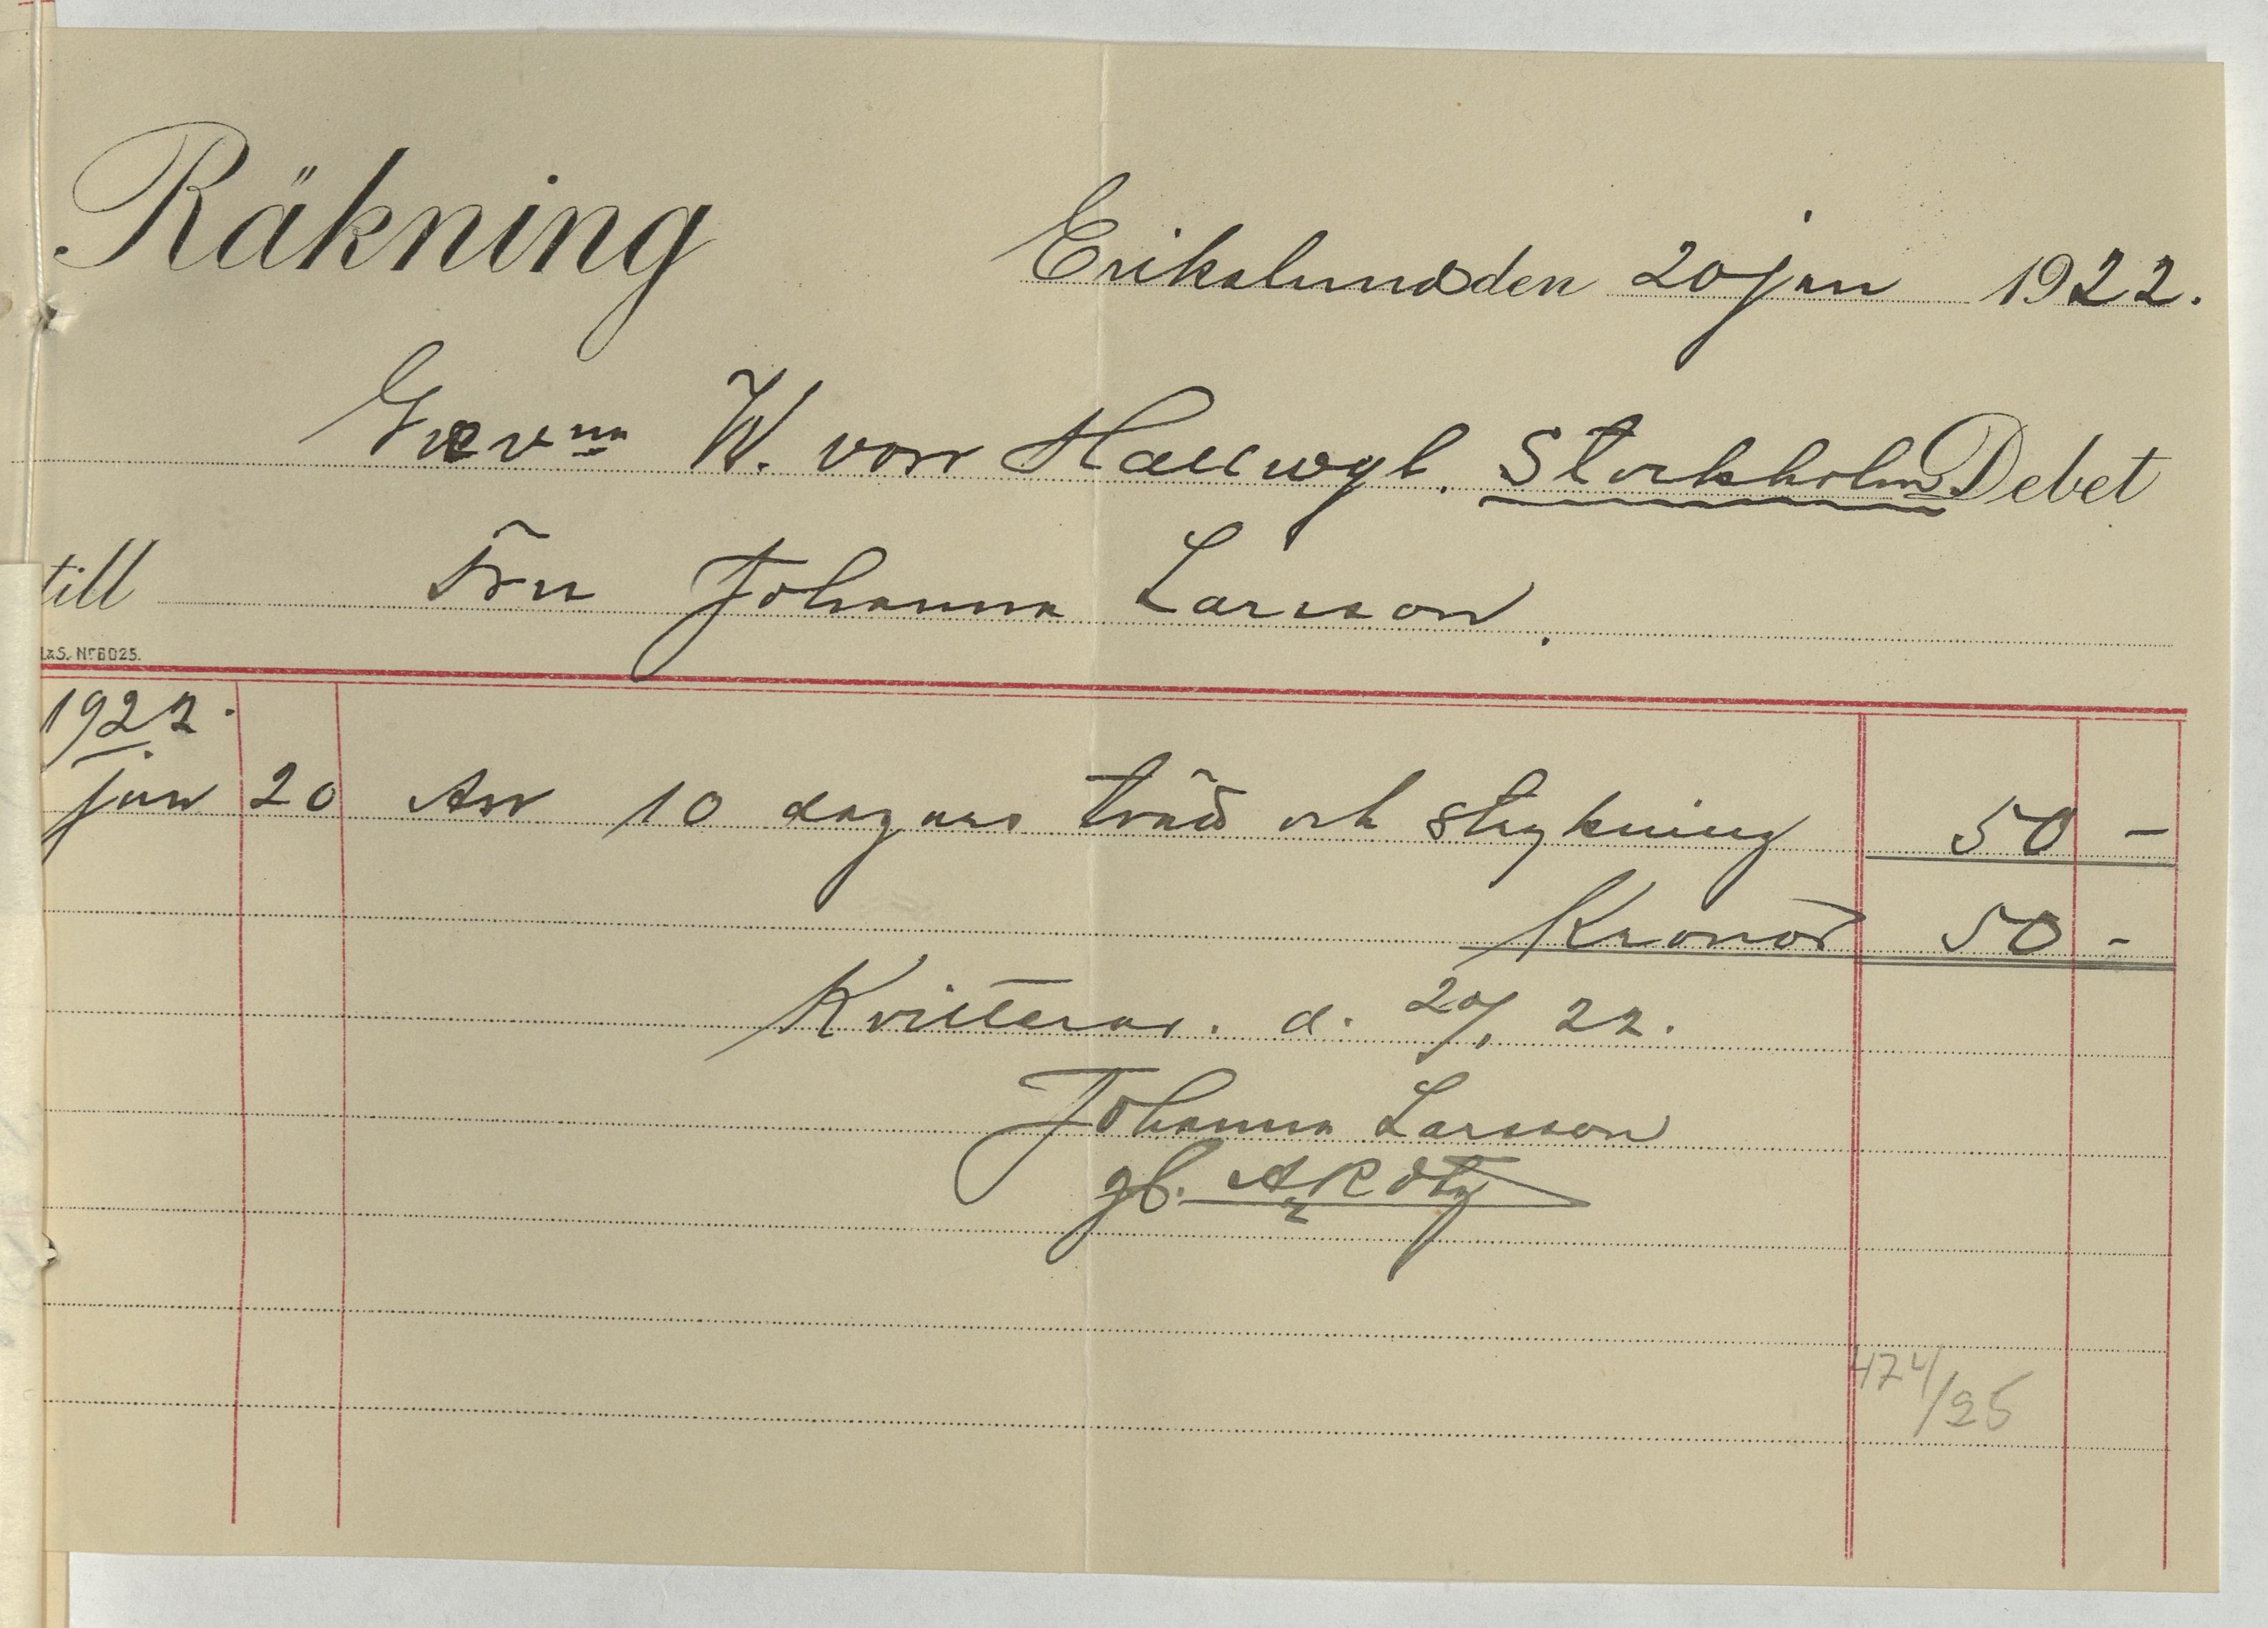 Räkning
Erikslund den 20 jan 1922.
Grevna W. von Hallwyl. Stockholm. Debet
till Fru Johanna Larsson.
L&S. No 6025.
1922.
jan 20 An 10 dagars tvätt och strykning 50 -
Kronor 50 -
Kvitteras. d. 20/1 22.
Johanna Larsson
gb.
474/25